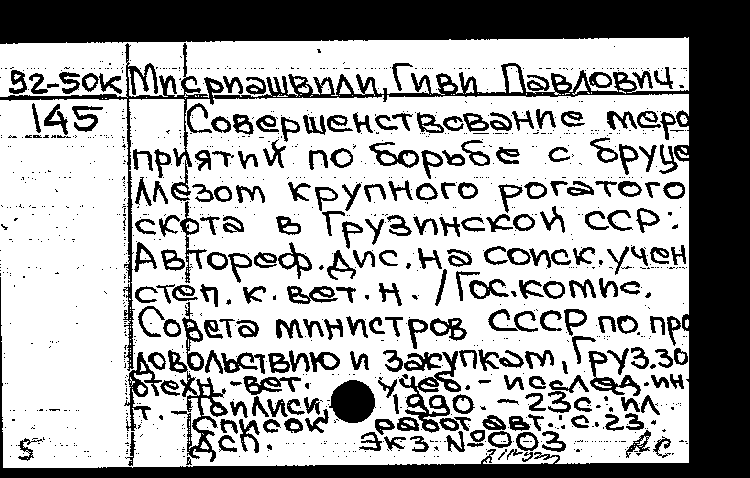 92-50к Мисриашвили, Гиви Павлович.
145 Совершенствование меро
приятий по борьбе с бруце
лезом крупного рогатого
скота в Грузинской ССР:
Автореф. дис. на соиск. учен
степ. к. вет. н. / Гос. комис.
Совета министров СССР по про
довольствию и закупкам, Груз. зо
отехн.-вет. учеб.-исслед. ин-
т. - Тбилиси, 1990. - 23с.: ил.
Список работ авт.: с. 23.
ДСП. Экз. №003
5 АС